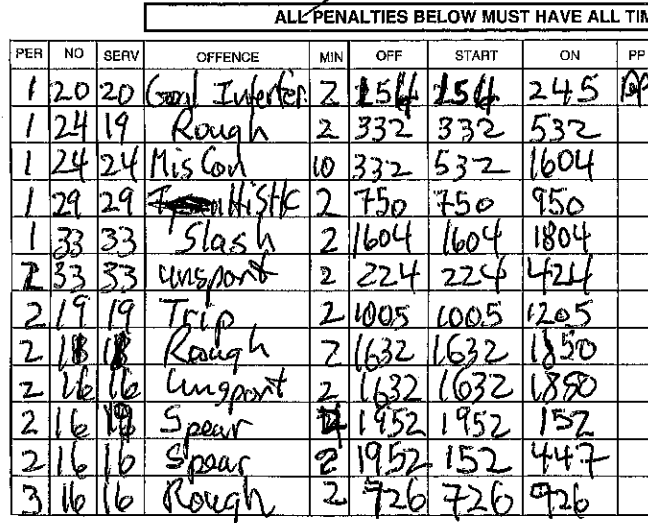 ALL PENALTIES BELOW MUST HAVE ALL TIM
PER NO SERV OFFENCE MIN OFF START ON PP
1 20 20 Goal Interfer. 2 154 154 245 PP
1 24 19 Rough 2 332 332 532
1 24 24 Mis Con 10 332 532 1604
1 29 29 HiStic 2 750 750 950
1 33 33 Slash 2 1604 1604 1804
2 33 33 unsport 2 224 224 424
2 19 19 Trip 2 1005 1005 1205
2 18 18 Rough 2 1632 1632 1850
2 16 16 Unsport 2 1632 1632 1850
2 16 Spear 4 1952 1952 152
2 16 16 Spear 2 1952 152 447
3 16 16 Rough 2 726 726 926